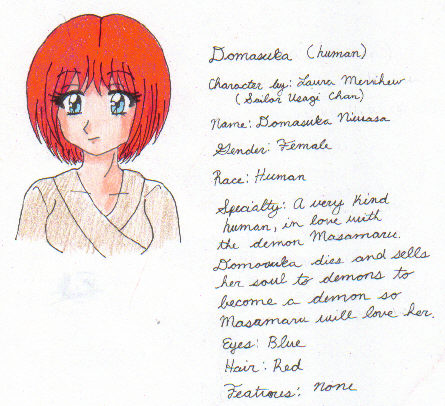 Domasuka (human)
Character by: Laura Merrihew
(Sailor Usagi Chan)
Name: Domasuka Niwasa
Gender: Female
Race: Human
Specialty: A very kind
human, in love with
the demon Masamaru.
Domasuka dies and sells
her soul to demons to
become a demon so
Masamaru will love her.
Eyes: Blue
Hair: Red
Featrous: none